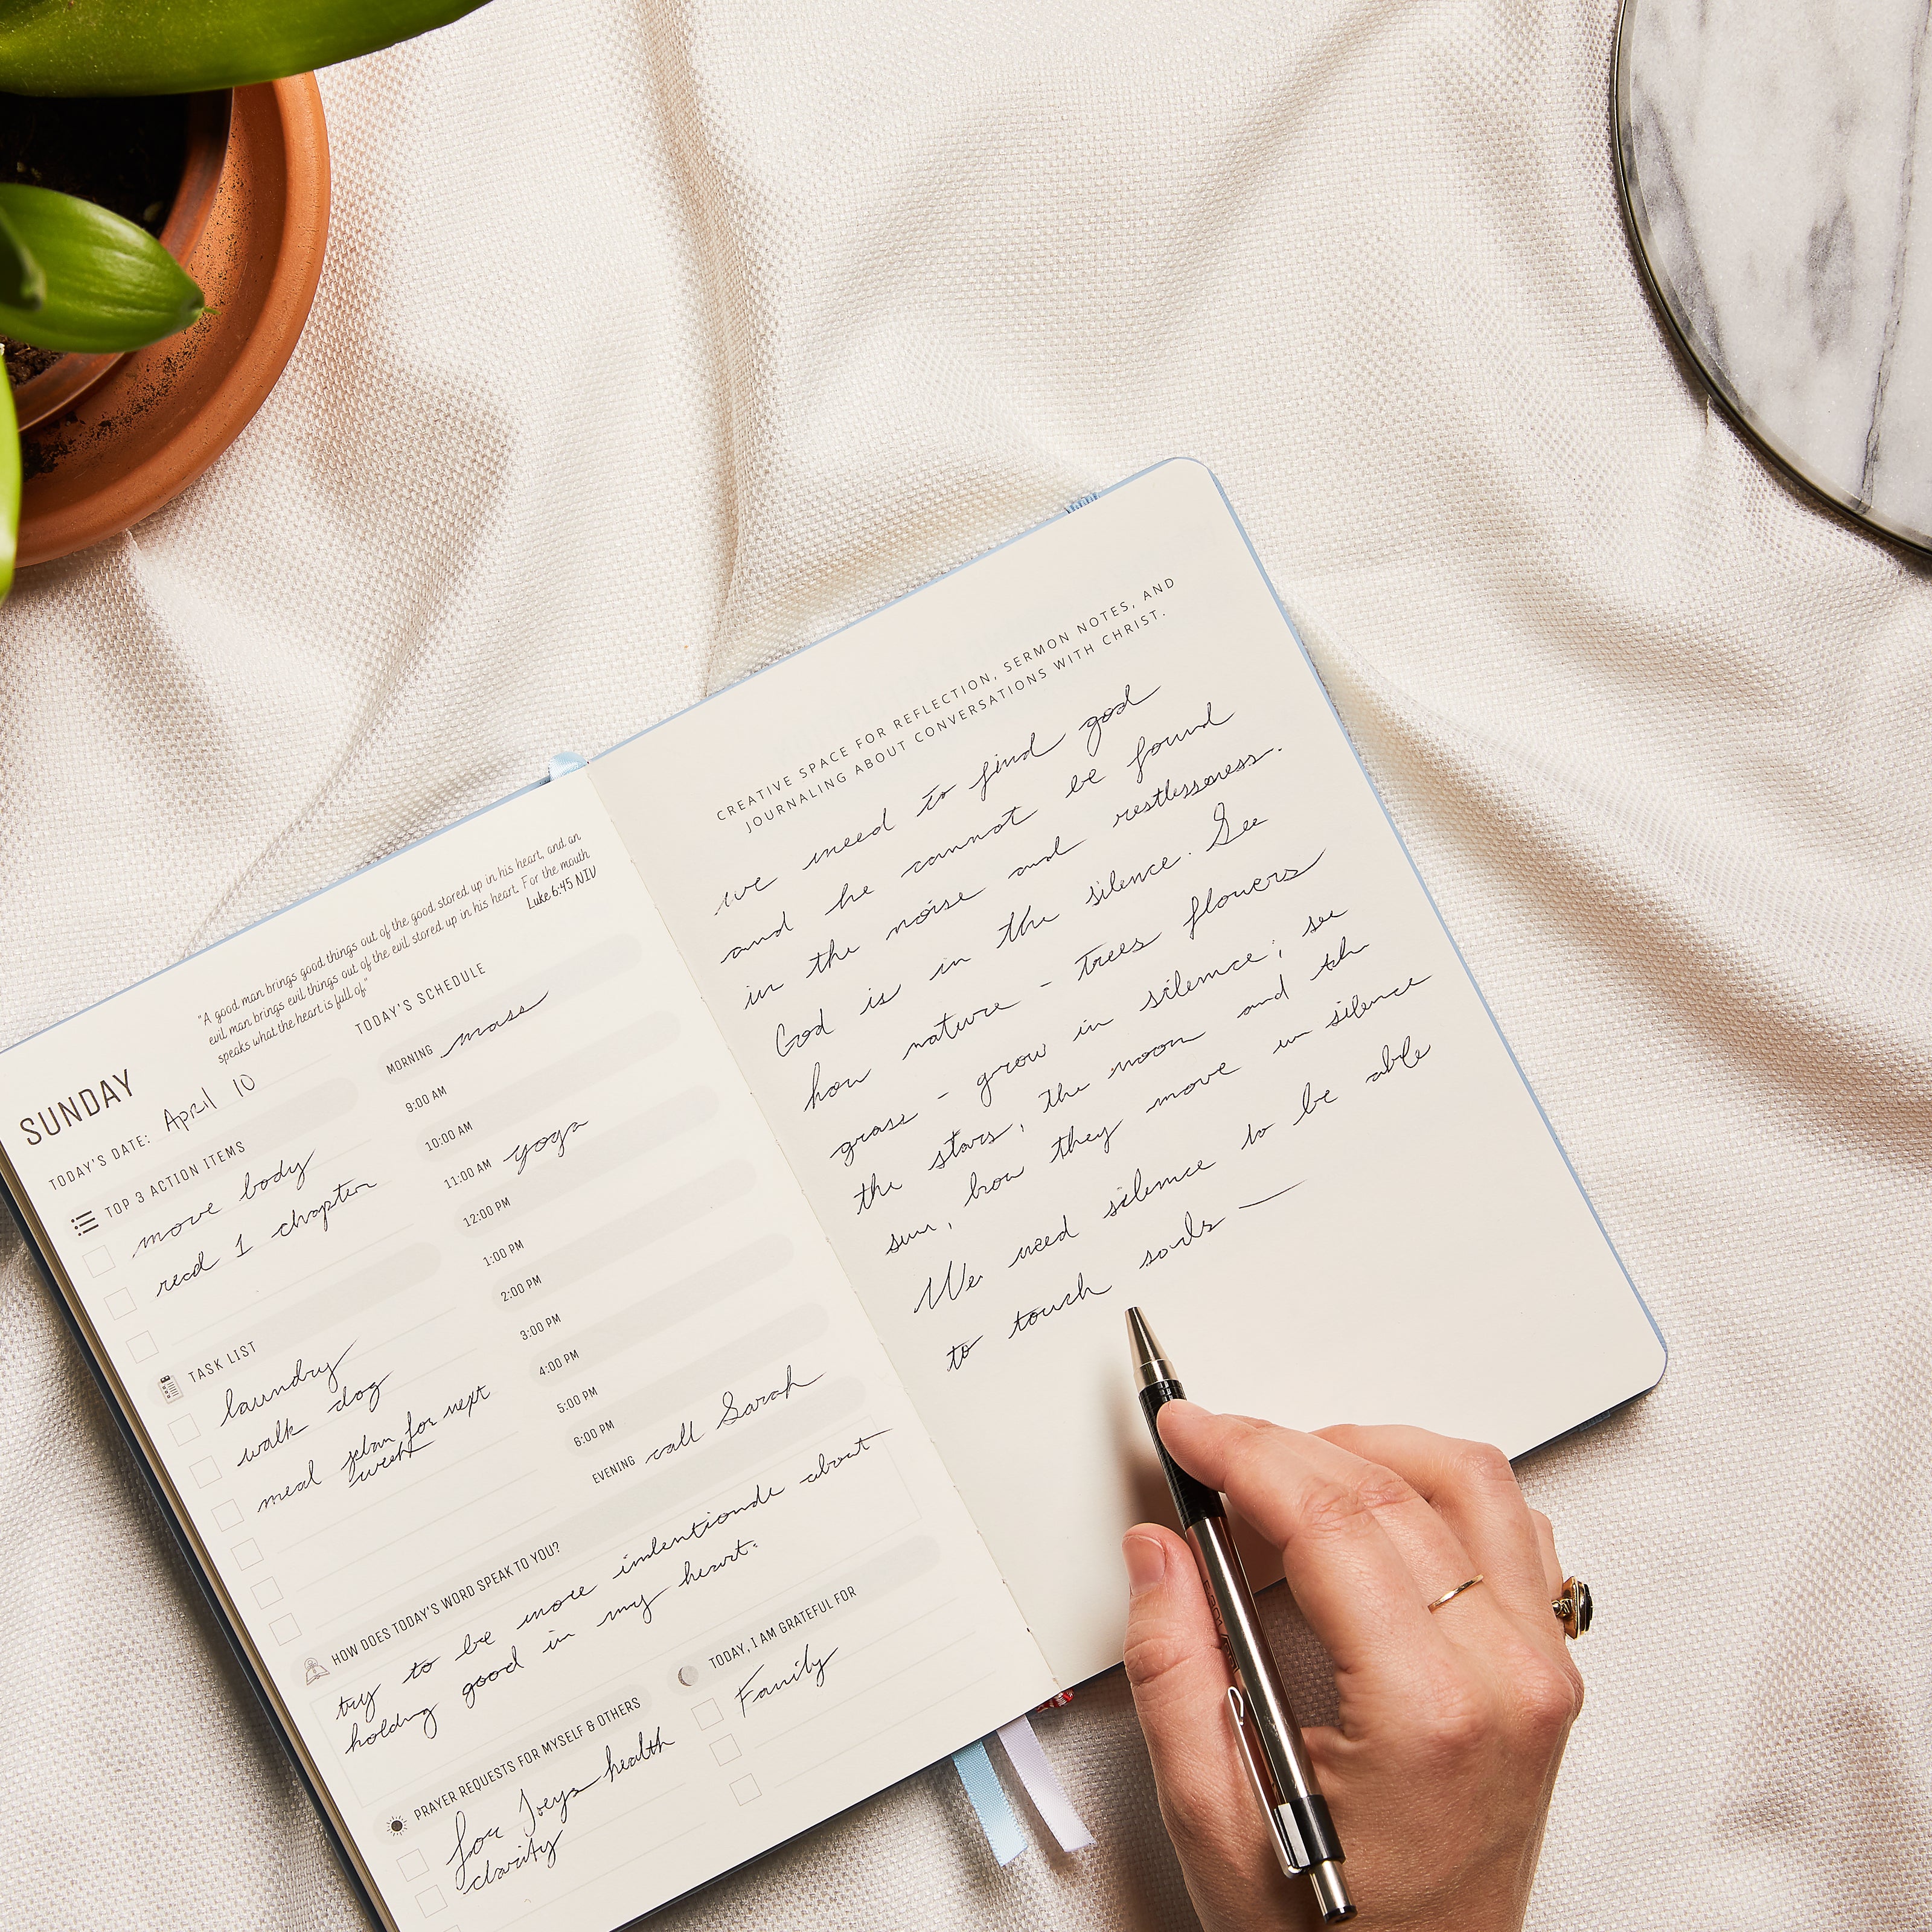 "A good man brings good things out of the good stored up in his heart, and an
evil man brings evil things out of the evil stored up in his heart. For the mouth
speaks what the heart is full of."
Luke 6:45 NIV
SUNDAY
TODAY'S DATE: April 10
TOP 3 ACTION ITEMS
move body
read 1 chapter
TASK LIST
laundry
walk dog
meal plan for next
week
TODAY'S SCHEDULE
MORNING mass
9:00 AM
10:00 AM
11:00 AM yoga
12:00 PM
1:00 PM
2:00 PM
3:00 PM
4:00 PM
5:00 PM
6:00 PM
EVENING call Sarah
HOW DOES TODAY'S WORD SPEAK TO YOU?
try to be more about
holding good in my heart.
PRAYER REQUESTS FOR MYSELF & OTHERS
for Joeys health
clarity
TODAY, I AM GRATEFUL FOR
Family
CREATIVE SPACE FOR REFLECTION, SERMON NOTES, AND
JOURNALING ABOUT CONVERSATIONS WITH CHRIST.
we need to find god
and he cannot be found
in the noise and restlessness.
God is in the silence. See
how nature - trees flowers
grass - grow in silence; see
the stars, the moon and th
sun, how they move in silence
We need silence to be able
to touch souls —